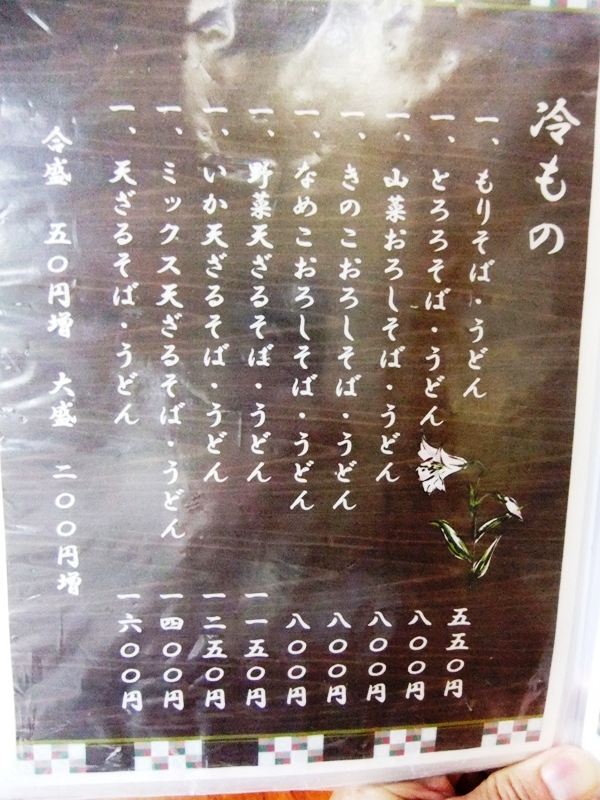 冷もの
一、もりそば・うどん 五五〇円
一、とろろそば・うどん 八〇〇円
一、山菜おろしそば・うどん 八〇〇円
一、きのこおろしそば・うどん 八〇〇円
一、なめこおろしそば・うどん 八〇〇円
一、野菜天ざるそば・うどん 一一五〇円
一、いか天ざるそば・うどん 一二五〇円
一、ミックス天ざるそば・うどん 一四〇〇円
一、天ざるそば・うどん 一六〇〇円
合盛 五〇円増 大盛 二〇〇円増